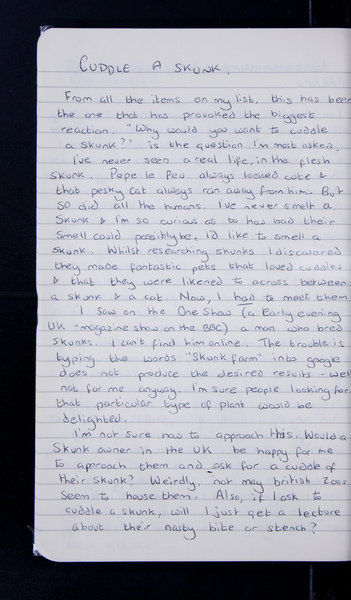 CUDDLE A SKUNK.
From all the items on my list, this has been
the one that has provoked the biggest
reaction. "Why would you want to cuddle
a skunk?" is the question I'm most asked.
I've never seen a real life, in the flesh
skunk. Pepe le Peu always looked cute &
that pesky cat always ran away from him. But
so did all the humans. I've never smelt a
skunk & I'm so curious as to how bad their
smell could possibly be, I'd like to smell a
skunk. Whilst researching skunks I discovered
they made fantastic pets that loved cuddles
& that they were likened to a cross between
a skunk & a cat. Now, I had to meet them.
I saw on the One Show (a early evening
UK "magazine show on the BBC) a man who bred
skunks. I can't find him online. The trouble is
typing the words "Skunk farm" into google
does not produce the desired results - well
not for me anyway. I'm sure people looking for
that particular type of plant would be
delighted.
I'm not sure how to approach this. Would a
skunk owner in the UK be happy for me
to approach them and ask for a cuddle of
their skunk? Weirdly, not may british zoos
seem to house them. Also, if I ask to
cuddle a skunk, will I just get a lecture
about their nasty bite or stench?